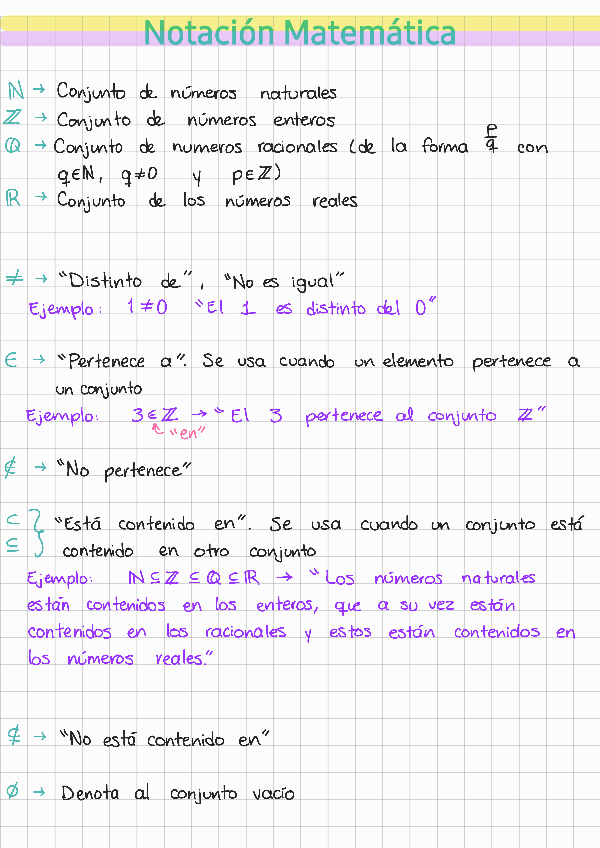 Notación Matemática
ℕ → Conjunto de números naturales
ℤ → Conjunto de números enteros
ℚ → Conjunto de numeros racionales (de la forma p/q con
q∈ℕ, q≠0 y p∈ℤ)
ℝ → Conjunto de los números reales
≠ → "Distinto de", "No es igual"
Ejemplo: 1≠0 "El 1 es distinto del 0"
∈ → "Pertenece a". Se usa cuando un elemento pertenece a
un conjunto
Ejemplo: 3∈ℤ → "El 3 pertenece al conjunto ℤ"
"en"
∉ → "No pertenece"
⊂ "Está contenido en". Se usa cuando un conjunto está
⊆ contenido en otro conjunto
Ejemplo: ℕ⊆ℤ⊆ℚ⊆ℝ → "Los números naturales
están contenidos en los enteros, que a su vez están
contenidos en los racionales y estos están contenidos en
los números reales."
⊈ → "No está contenido en"
∅ → Denota al conjunto vacío